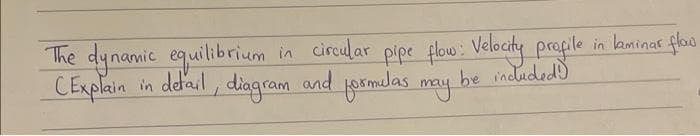 The dynamic equilibrium in circular pipe flow: Velocity profile in laminar flow
(Explain in detail, diagram and formulas may be included!)